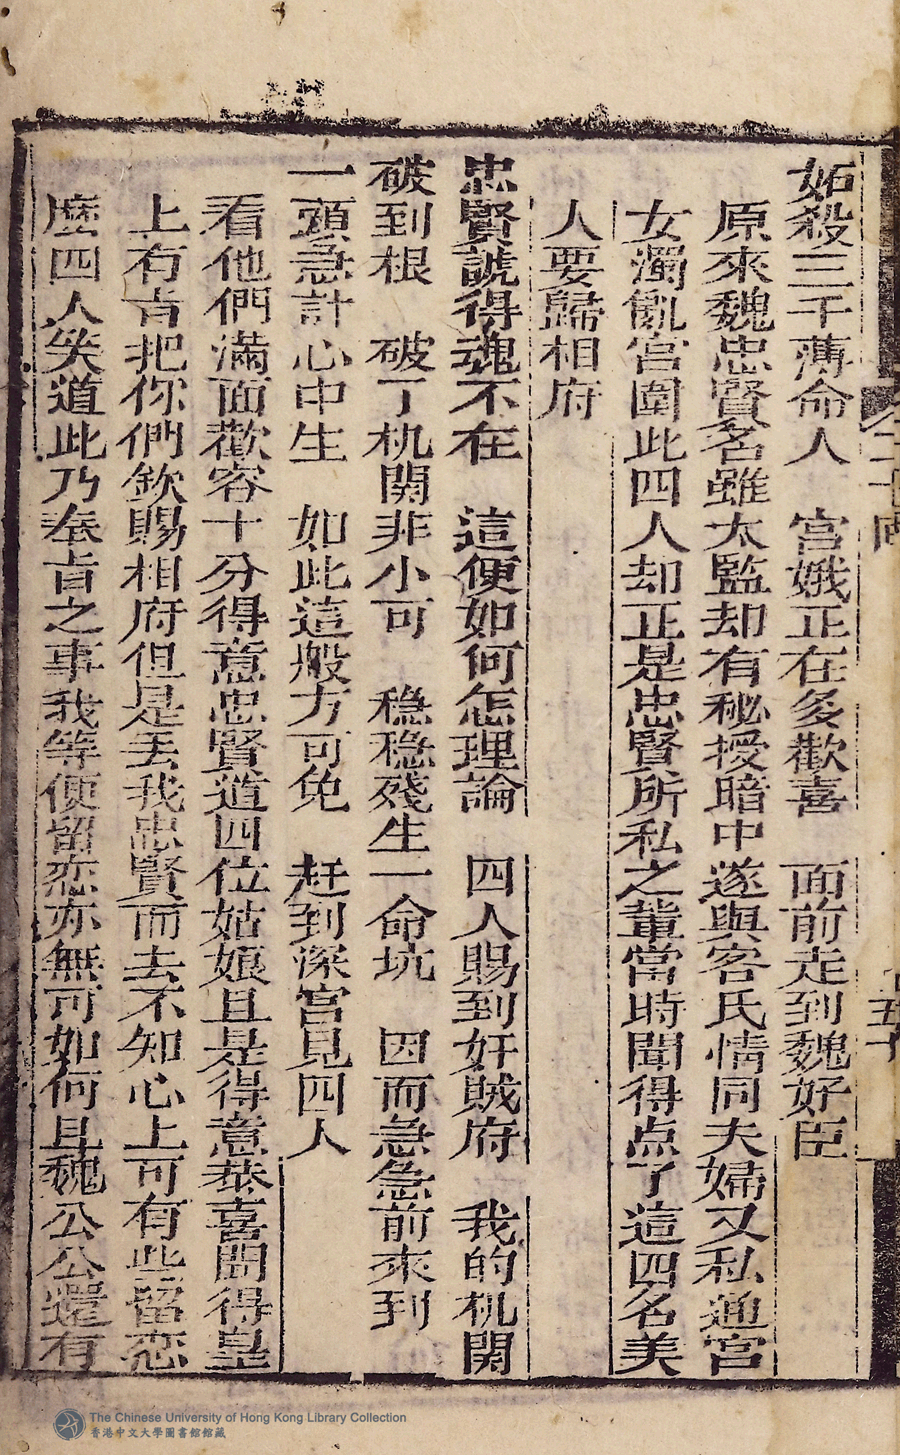 妬殺三千薄命人　宮娥正在多歡喜　面前走到魏奸臣
原來魏忠賢名雖太監却有秘授暗中遂與客氏情同夫婦又私通宮
女濁亂宮圍此四人却正是忠賢所私之輩當時聞得点了這四名美
人要歸相府
忠賢諕得魂不在　這便如何怎理論　四人賜到奸賊府　我的机關
破到根　破了机關非小可　穏穏殘生一命坑　因而急急前來到
一頭急計心中生　如此這般方可免　赶到深宮見四人
看他們滿面歡容十分得意忠賢道四位姑娘且是得意恭喜聞得皇
上有旨把你們欽賜相府但是丟我忠賢而去不知心上可有些留恋
麽四人笑道此乃奉旨之事我等便留恋亦無可如何且魏公公還有
二十回
五十
The Chinese University of Hong Kong Library Collection
香港中文大學圖書館館藏